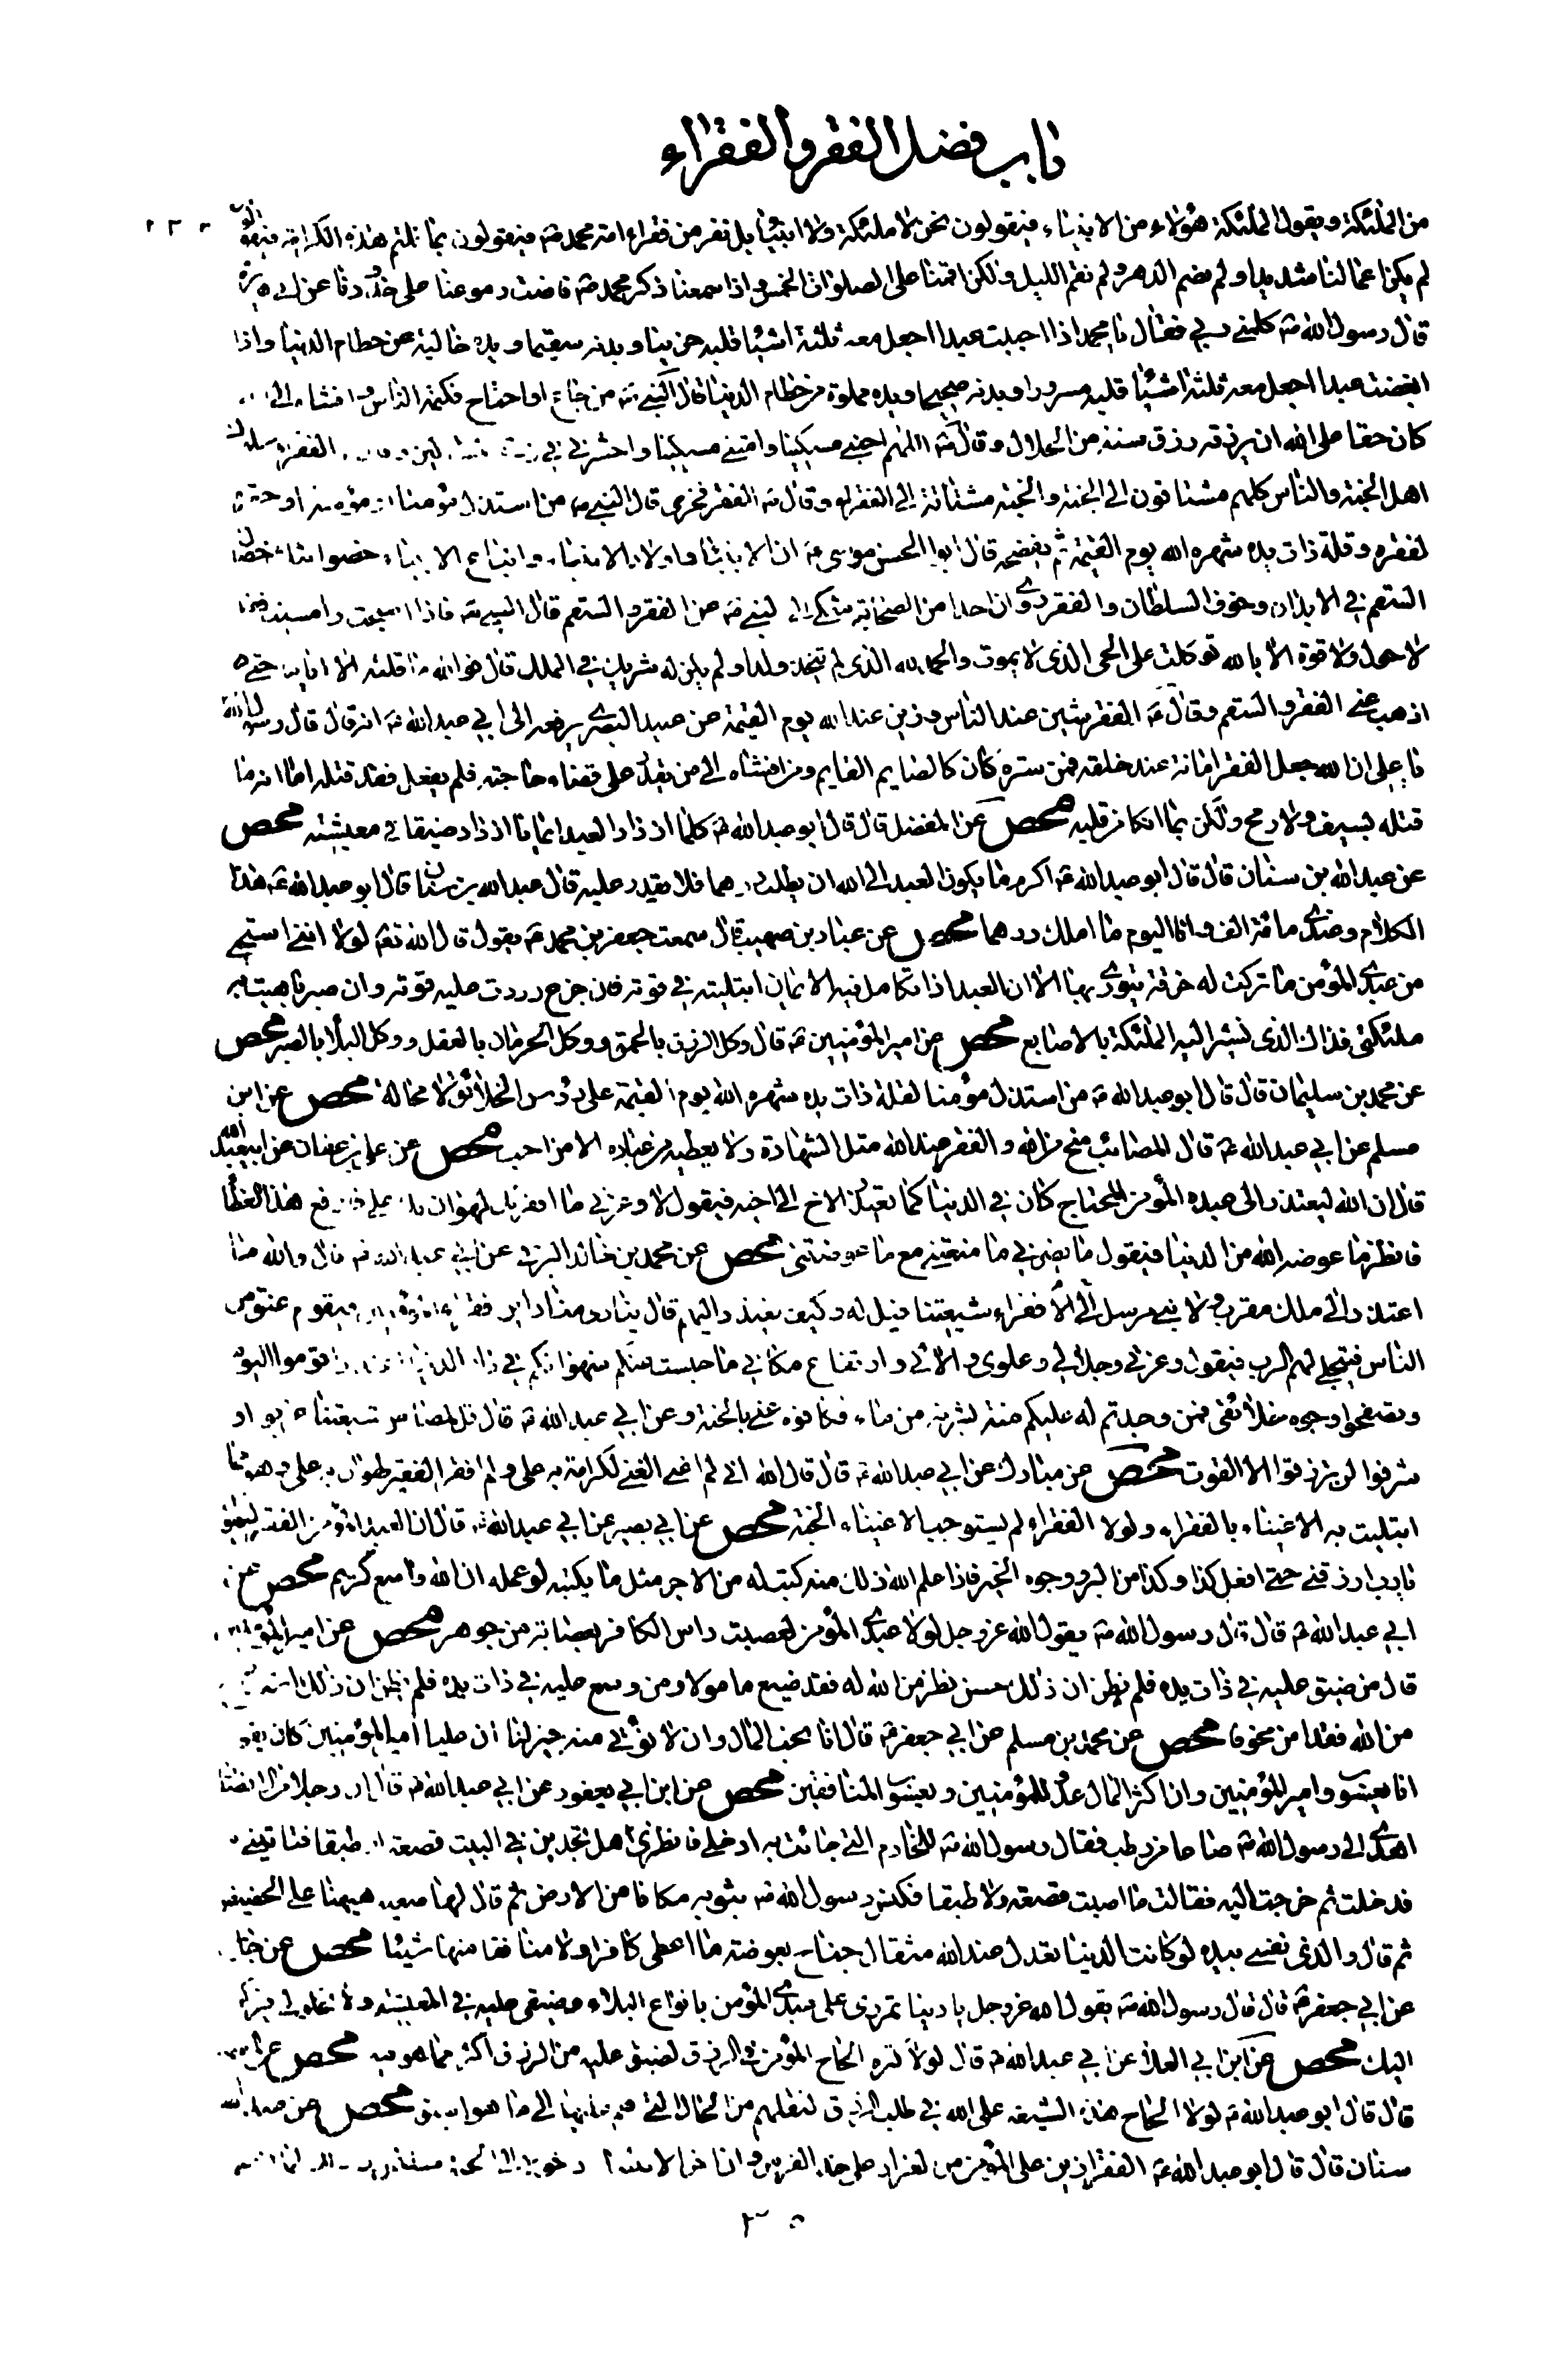 باب فضل الفقر والفقراء
من الملئكة ويقول الملئكة هؤلاء من الانبياء فيقولون نحن لا ملئكة ولا انبياء بل نفر من فقراء امة محمد ص فيقولون بما نلتم هذه الكرامة فيقولون
لم يكن اعمالنا شديدا ولم نصم الدهر ولم نقم الليل ولكن اقمنا على الصلوات الخمس واذا سمعنا ذكر محمد ص فاضت دموعنا على خدودنا عن ابي هريرة
قال رسول الله ص كلمني ربي فقال يا محمد اذا احببت عبدا اجعل معه ثلثة اشياء قلبه حزينا وبدنه سقيما ويده خالية عن حطام الدنيا واذا
ابغضت عبدا اجعل معه ثلثة اشياء قلبه مسرورا وبدنه صحيحا ويده مملوة من حطام الدنيا قال النبي ص من جاع او احتاج فكتمه الناس وافشاه الى
كان حقا على الله ان يرزقه رزق سنة من الحلال وقال ص اللهم احيني مسكينا وامتني مسكينا واحشرني في الفقراء ملوك
اهل الجنة والناس كلهم مشتاقون الى الجنة والجنة مشتاقة الى الفقراء وقال ص الفقر فخري قال النبي ص من استذل مؤمنا او مؤمنة او حقره
لفقره وقلة ذات يده شهره الله يوم القيمة ثم يفضحه قال ابو الحسن موسى ع ان الانبياء واولاد الانبياء واتباع الانبياء خصوا بثلث خصال
السقم في الابدان وخوف السلطان والفقر روى ان احدا من الصحابة شكى الى النبي ص عن الفقر والسقم قال النبي ص فاذا اصبحت وامسيت فقل
لا حول ولا قوة الا بالله توكلت على الحي الذي لا يموت والحمد لله الذي لم يتخذ ولدا ولم يكن له شريك في الملك قال فوالله ما قلته الا اياما حتى
اذهب عني الفقر والسقم وقال ع الفقر شين عند الناس وزين عند الله يوم القيمة عن عبيد البصري يرفعه الى ابي عبد الله ع انه قال قال رسول الله
يا علي ان الله جعل الفقر امانة عند خلقه فمن ستره كان كالصائم القايم ومن افشاه الى من يقدر على قضاء حاجته فلم يفعل فقد قتله اما انه ما
قتله بسيف ولا رمح ولكن بما انكا من قلبه محص عن المفضل قال قال ابو عبد الله ع كلما ازداد العبد ايمانا ازداد ضيقا في معيشته محص
عن عبد الله بن سنان قال قال ابو عبد الله ع اكرم ما يكون العبد الى الله ان يطلب درهما فلا يقدر عليه قال عبد الله بن سنان قال ابو عبد الله ع هذا
الكلام وعندي مائة الف وانا اليوم ما املك درهما محص عن عباد بن صهيب قال سمعت جعفر بن محمد ع يقول قال الله تعالى لولا انني استحيي
من عبدي المؤمن ما تركت له خرقة يتوارى بها الا ان العبد اذا تكامل فيه الايمان ابتليته في قوته فان جزع رددت عليه قوته وان صبر باهيت به
ملئكتي فذاك الذي تشير اليه الملئكة بالاصابع محص عن امير المؤمنين ع قال وكل الرزق بالحمق ووكل الحرمان بالعقل ووكل البلاء بالصبر محص
عن محمد بن سليمان قال قال ابو عبد الله ع من استذل مؤمنا لقلة ذات يده شهره الله يوم القيمة على رؤس الخلائق لا محالة محص عن ابن
مسلم عن ابي عبد الله ع قال المصائب منح من الله والفقر عند الله مثل الشهادة ولا يعطيه من عباده الا من احب محص عن علي بن عفان عن ابي عبد الله
قال ان الله ليعتذر الى عبده المؤمن المحتاج كان في الدنيا كما يعتذر الاخ الى اخيه فيقول لا وعزتي ما افقرتك لهوان بك علي فارفع هذا الغطا
فانظر ما عوضتك من الدنيا فيقول ما يضرني ما منعتني مع ما عوضتني محص عن محمد بن خالد البرقي عن ابي عبد الله ع قال والله ما
اعتذر الى ملك مقرب ولا نبي مرسل الا الى فقراء شيعتنا قيل له وكيف يعتذر اليهم قال ينادي مناد اين فقراء فيقوم عنق من
الناس فيتجلى لهم الرب فيقول وعزتي وجلالي وعلوي والائي وارتفاع مكاني ما حبست عنكم شهواتكم في دار الدنيا قوموا اليوم
وتصفحوا وجوه خلائقي فمن وجدتم له عليكم منة بشربة من ماء فكافوه عني بالجنة وعن ابي عبد الله ع قال قل لمصاص شيعتنا غربوا او
شرقوا لن ترزقوا الا القوت محص عن مبارك عن ابي عبد الله ع قال قال الله اني لم اغن الغني لكرامة به علي ولم افقر الفقير لهوان به علي وهو مما
ابتليت به الاغنياء بالفقراء ولولا الفقراء لم يستوجب الاغنياء الجنة محص عن ابي بصير عن ابي عبد الله ع قال ان العبد المؤمن الفقير ليقول
يا رب ارزقني حتى افعل كذا وكذا من البر ووجوه الخير فاذا علم الله ذلك منه كتب له من الاجر مثل ما يكتبه لو عمله ان الله واسع كريم محص عن
ابي عبد الله ع قال قال رسول الله ص يقول الله عز وجل لولا عبدي المؤمن لعصبت راس الكافر بعصابة من جوهر محص عن امير المؤمنين
قال من ضيق عليه في ذات يده فلم يظن ان ذلك حسن نظر من الله له فقد ضيع مامولا ومن وسع عليه في ذات يده فلم يظن ان ذلك استدراج
من الله فقد امن مخوفا محص عن محمد بن مسلم عن ابي جعفر ع قال انا نحب المال وان لا نؤتى منه خير لنا ان عليا امير المؤمنين كان يقول
انا يعسوب امير المؤمنين وان اكثر المال عدو للمؤمنين ويعسوب المنافقين محص عن ابن ابي يعفور عن ابي عبد الله ع قال ان رجلا من الانصار
اهدى الى رسول الله ص صاعا من رطب فقال رسول الله ص للخادم التي جائت به ادخلي فانظري هل تجدين في البيت قصعة او طبقا فتاتيني
فدخلت ثم خرجت اليه فقالت ما اصبت قصعة ولا طبقا فكنس رسول الله ص بثوبه مكانا من الارض ثم قال لها ضعيه ههنا على الحضيض
ثم قال والذي نفسي بيده لو كانت الدنيا تعدل عند الله مثقال جناح بعوضة ما اعطى كافرا ولا منافقا منها شيئا محص عن جابر
عن ابي جعفر ع قال قال رسول الله ص يقول الله عز وجل يا دنيا تمرري على عبدي المؤمن بانواع البلاء وضيقي عليه في المعيشة ولا تحلولي فيركن
اليك محص عن ابن ابي العلا عن ابي عبد الله ع قال لولا كثرة الحاح المؤمن في الرزق لضيق عليه من الرزق اكثر مما هو فيه محص عن
قال قال ابو عبد الله ع لولا الحاح هذه الشيعة على الله في طلب الرزق لنقلهم من الحال التي هم عليها الى ما هو اضيق محص عن عبد الله
سنان قال قال ابو عبد الله ع الفقر ازين على المؤمن من العذار على خد الفرس وان اخر الانبياء دخولا الى الجنة سليمن